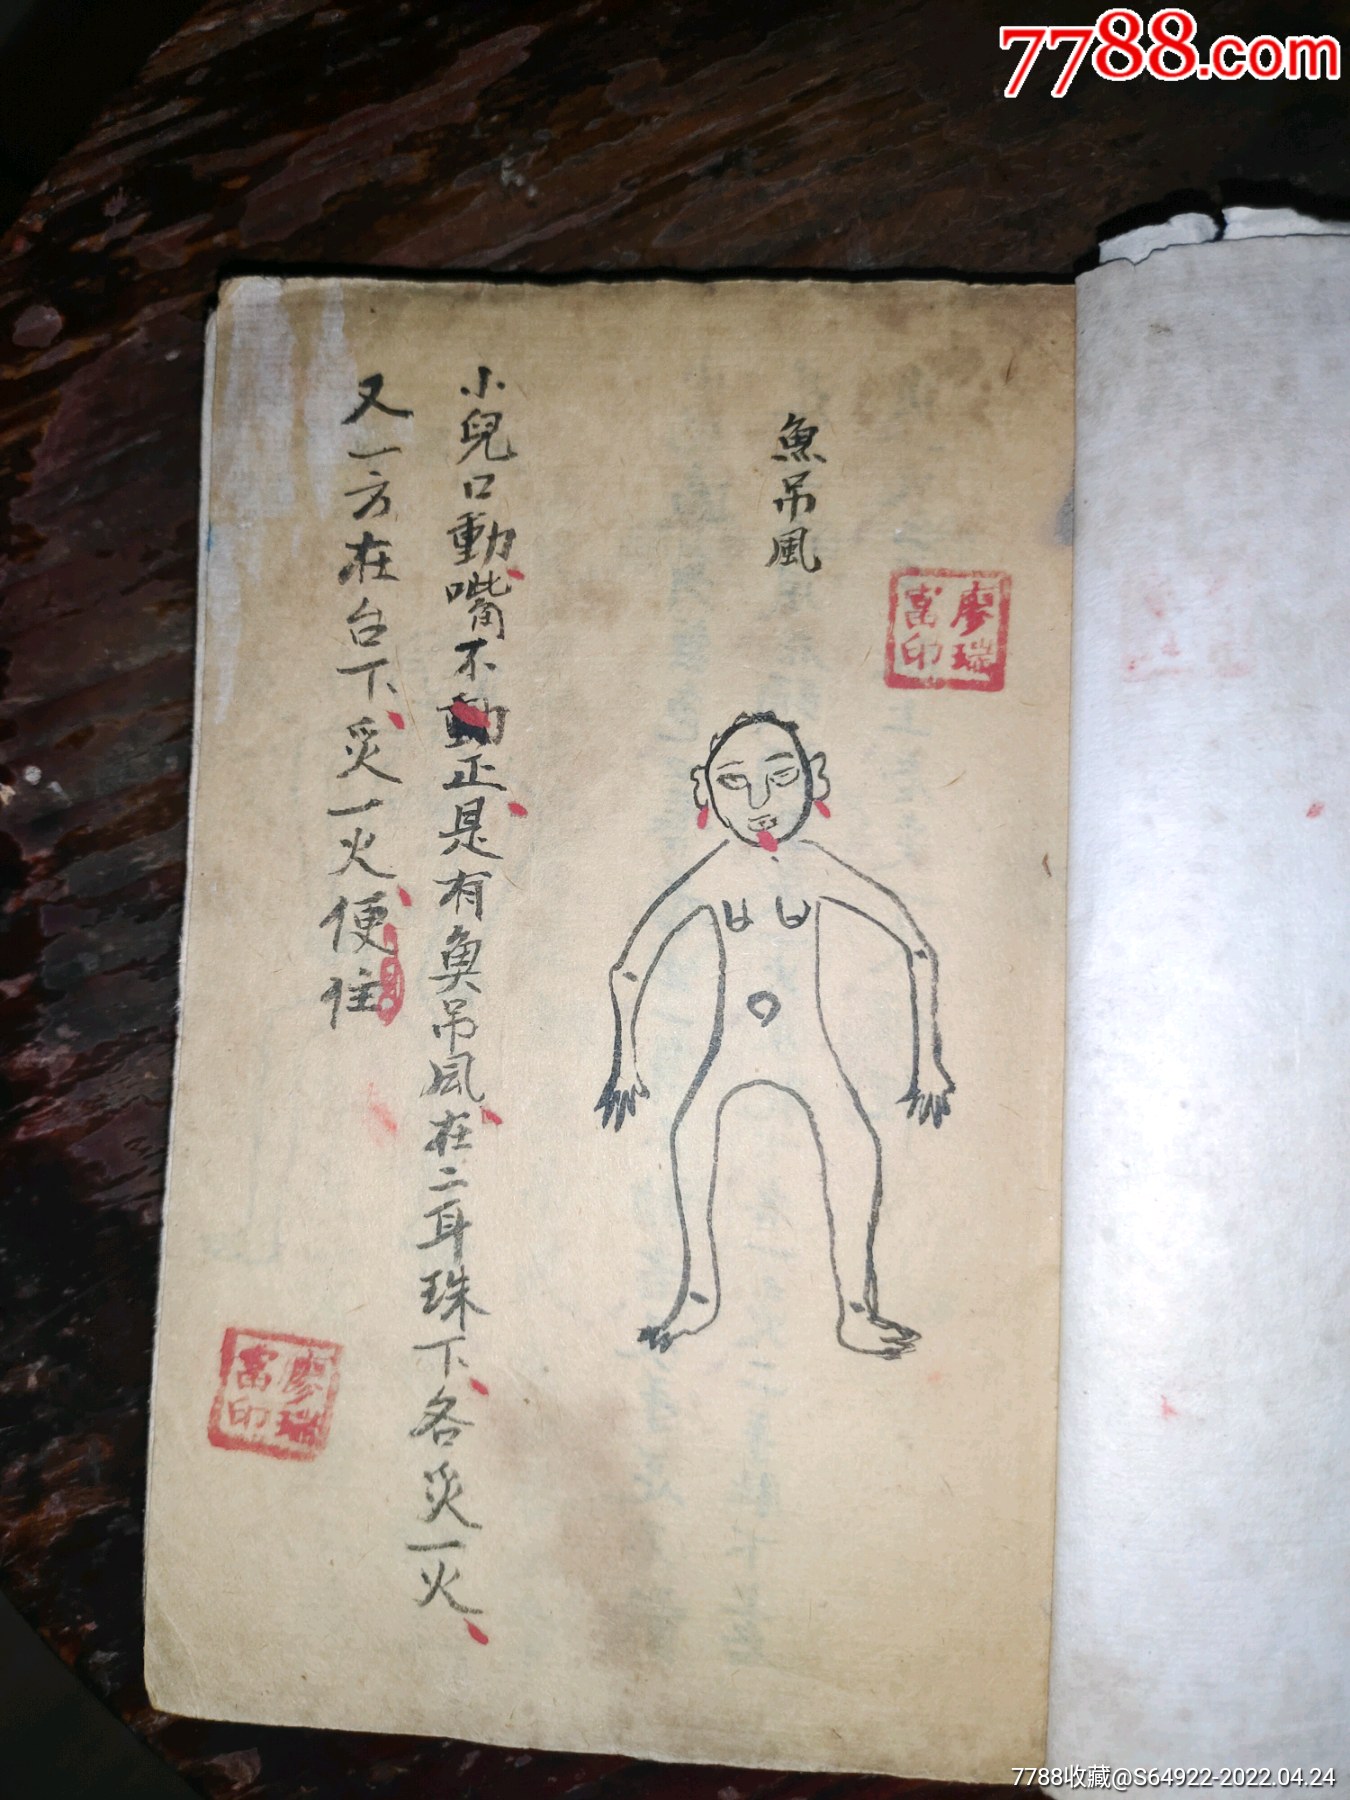 7788.com
魚吊風
廖瑞
富印
小兒口動嘴不動正是有魚吊風在二耳珠下各炙一火
又一方在台下炙一火便住
廖瑞
富印
7788收藏@S64922-2022.04.24